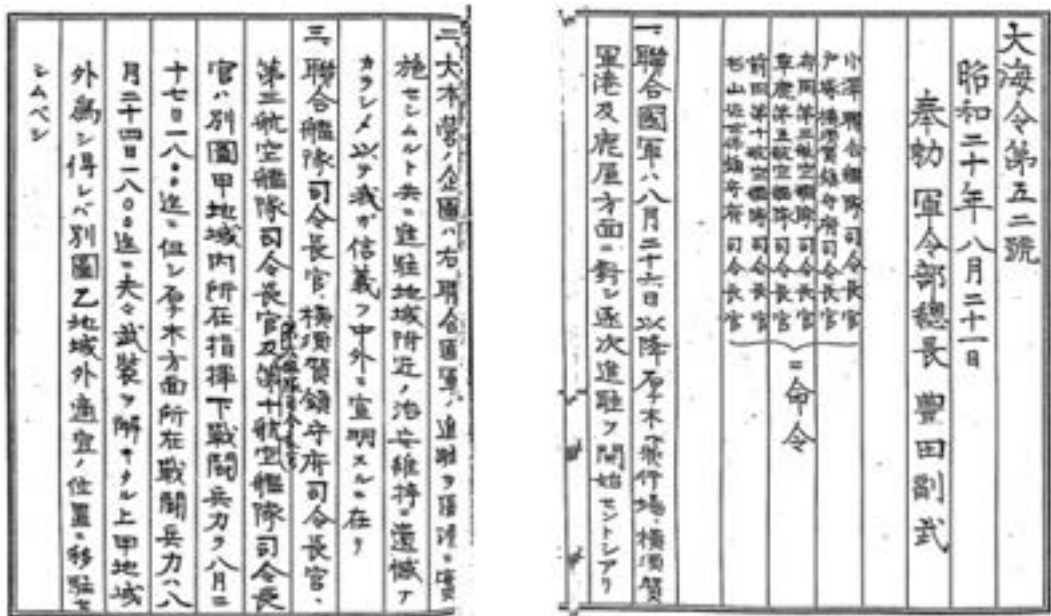 大海令第五二號
昭和二十年八月二十一日
奉勅 軍令部總長 豊田副武
小澤聯合艦隊司令長官
戸塚横須賀鎮守府司令長官
寺岡第三航空艦隊司令長官
草鹿第五航空艦隊司令長官
前田第十航空艦隊司令長官
杉山佐世保鎮守府司令長官
ニ命令
一、聯合國軍ハ八月二十六日以降厚木飛行場、横須賀
軍港及鹿屋方面ニ對シ逐次進駐ヲ開始セントシアリ
二、大本營ノ企圖ハ右聯合國軍ノ進駐ヲ圓滑ニ實
施セシムルト共ニ進駐地域附近ノ治安維持ニ遺憾ナ
カラシメ以テ我ガ信義ヲ中外ニ宣明スルニ在リ
三、聯合艦隊司令長官、横須賀鎮守府司令長官、
第三航空艦隊司令長官及第十航空艦隊司令長
官ハ別圖甲地域内所在指揮下戰鬪兵力ヲ八月二
十七日一八〇〇迄ニ但シ厚木方面所在戰鬪兵力ハ八
月二十四日一八〇〇迄ニ夫々武裝ヲ解キタル上甲地域
外為シ得レバ別圖乙地域外適宜ノ位置ニ移駐セ
シムベシ